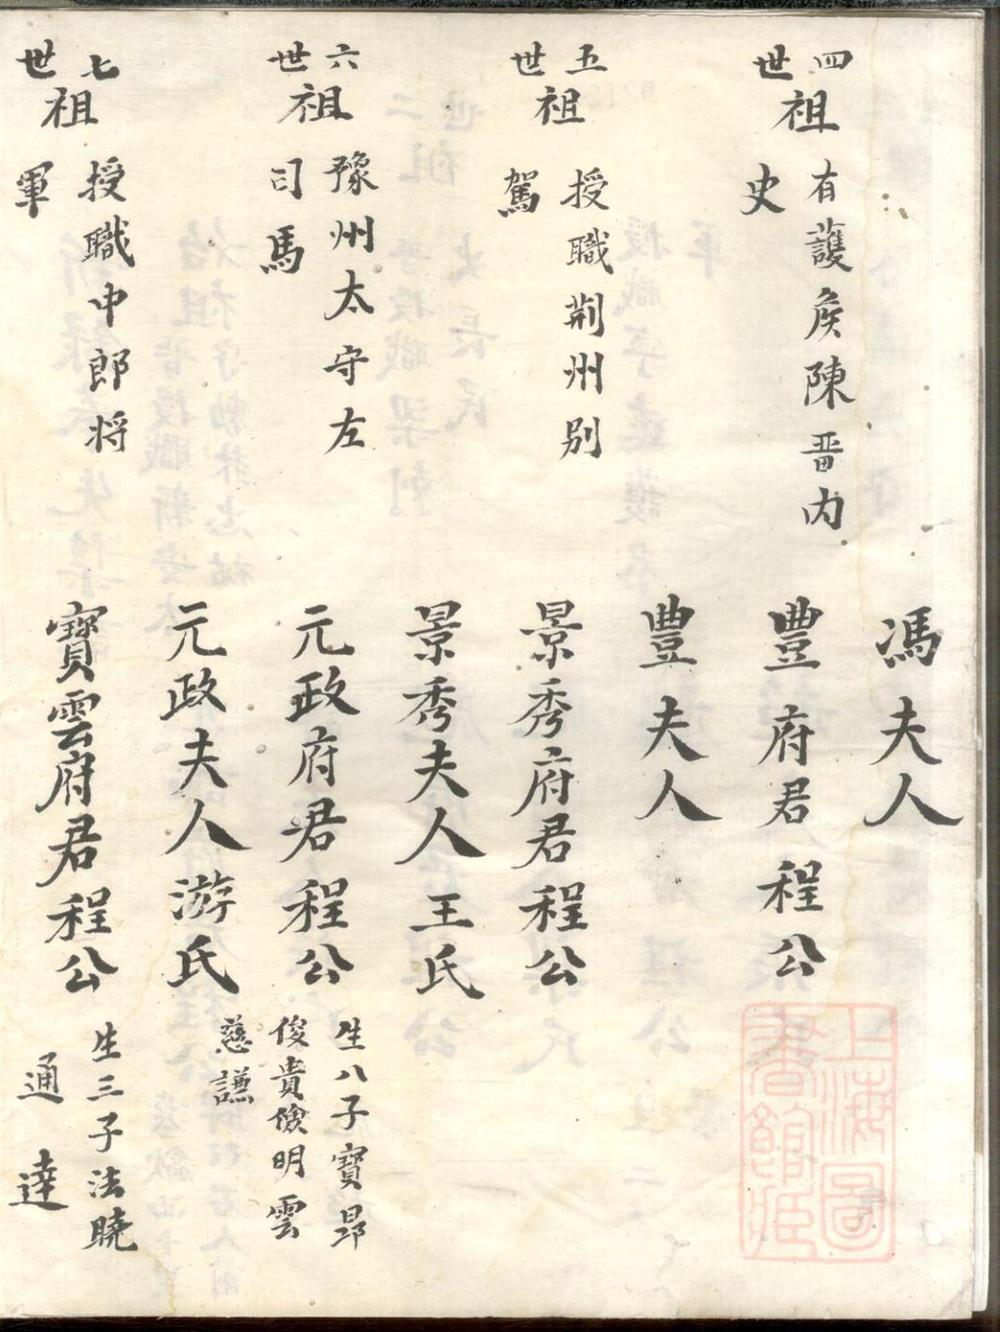 馮夫人
四世祖
有護侯陳晋內
史
豐府君程公
豐夫人
五世祖
授職荊州別
駕
景秀府君程公
景秀夫人王氏
六世祖
豫州太守左
司馬
元政府君程公
生八子寶昂
俊貴儉明雲
慈謙
元政夫人游氏
七世祖
授職中郎将
軍
寶雲府君程公
生三子法曉
通達
上海圖
書館藏